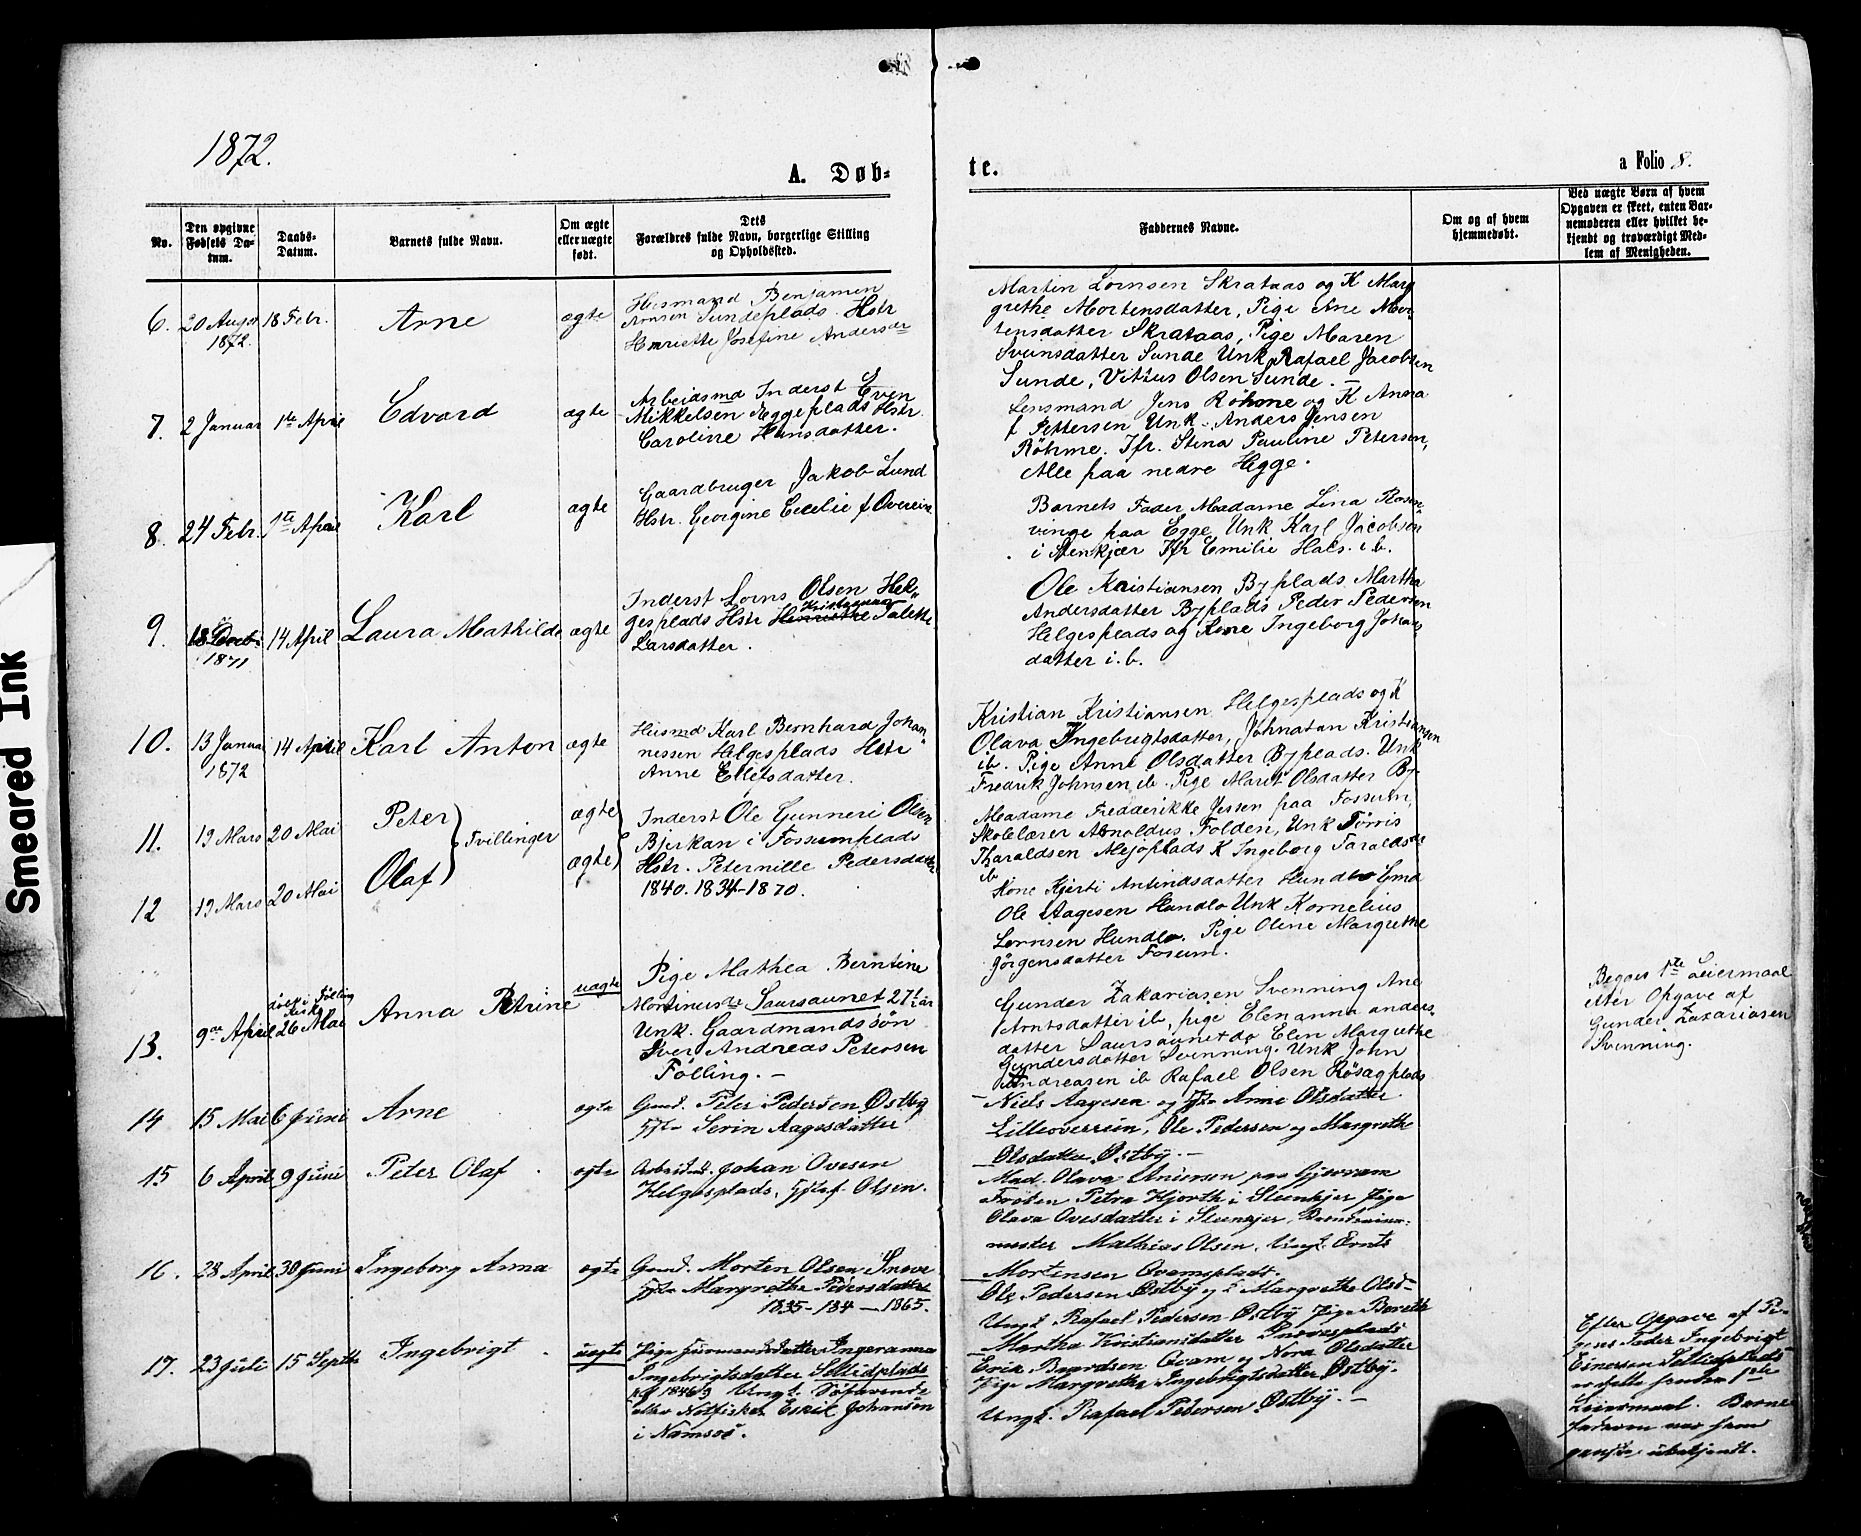 1872.
A. Døb-
te.
a Folio 8.
No.
Den opgivne
Fødsels Da-
tum.
Daabs-
Datum.
Barnets fulde Navn.
Om ægte
eller uægte
født.
Dets
Forældres fulde Navn, borgerlige Stilling
og Opholdssted.
Faddernes Navne.
Om og af hvem
hjemmedøbt.
Ved uægte Børn af hvem
Opgaven er skeet, enten Bar-
nemoderen eller hvilket be-
kjendt og troværdigt Med-
lem af Menigheden.
6. 20 August 18 Febr. Arne ægte
1872.
Husmand Benjamin
Arnsen Sundeplads. Hstr
Henriette Josefine Andersdr
Martin Lornsen Skrataas og K Mar
grethe Mortensdatter, Pige Ane Mor
tensdatter Skrataas, Pige Maren
Svensdatter Sunde Unk Rafael Jacobsen
Sunde, Vitius Olsen Sunde. —
7. 2 Januar 1ste April Edvard ægte
Arbeidsmd Inderst Even
Mikkelsen Heggeplads Hstr
Caroline Hansdatter.
Lensmand Jens Röhme og K Anna
f Pettersen Unk. Anders Jensen
Röhme. Jfr. Stina Pauline Petersen,
Alle paa nedre Hegge.
8. 24 Febr. 1ste April Karl ægte
Gaardbruger Jakob Lund
Hstr. Georgine Cecilie f Overein
Barnets Fader Madame Lina Rosen-
vinge paa Egge, Unk Karl Jacobsen
i Stenkjær Jfr Emilie Hals. i.b.
9. 18 Decbr 14 April Laura Mathilde ægte
1871
Inderst Lorns Olsen Hel-
gesplads Hstr Henriette Kristianna Talette
Larsdatter.
Ole Kristiansen Byplads Martha
Andersdatter Byplads Peder Pedersen
Helgesplads og Kone Ingeborg Johans
datter i.b.
10. 13 Januar 14 April Karl Anton ægte
1872
Husmd Karl Bernhard Johan-
nessen Helgesplads Hstr
Anne Ellefsdatter.
Kristian Kristiansen Helgesplads og K
Olava Ingebrigtsdatter, Johnatan Kristiansen
ib. Pige Anne Olsdatter Byplads. Unk
Fredrik Johnsen, ib. Pige Marit Olsdatter By-
11. 19 Mars 20 Mai Peter } Tvillinger ægte
12 19 Mars 20 Mai Olaf ægte
Inderst Ole Gunneri Olsen
Bjerkan i Fossumplads
Hstr. Peternille Pedersdatter
1840. 1834-1870.
Madame Fredderikke Jessen paa Fossum,
Skolelærer Arnoldus Folden, Unk Törris
Tharaldsen Mejoplads K Ingeborg Taraldsdr
ib
Kone Kjersti Antindsdatter Hundlo Gmd
Ole Aagesen Hundlo Unk Kornelius
Lornsen Hundlo. Pige Oline Margrethe
Jörgensdatter Fosum.
13. 9de April 26 Mai Anna Petrine uægte
Pige Mathea Berntine
Mortinusdr Saursaunet 27 1/2 aar
Unk. Gaardmandssön
Iver Andreas Petersen
Følling. —
Gunder Zakariasen Svenning Ane
Arntsdatter ib, pige Elenanna anders-
datter Saursaunet do Elen Margrethe
Gundersdatter Svenning. Unk John
Andreasen ib Rafael Olsen Røsagplads
Begges 1ste Leiermaal
efter Opgave af
Gunder Zakariasen
Svenning.
14 15 Mai 6 Juni Arne ægte
Gmd. Peter Pedersen Østby
Hstr Serin Aagesdatter
Niels Aagesen og Hstr Anne Olsdatter
Lilleoverrein, Ole Pedersen og Margrethe
Olsdatter Østby. —
15 6 April 9 Juni Peter Olaf ægte
Arbeidsmd. Johan Ovesen
Helgesplads, Olsen.
Mad. Olava paa Gjævran
Frøken Petra Hjorth i Steenkjer Pige
Olava Ovesdatter i Steenkjer,
mester Mathias Olsen, Ungk. Arnt
Mortensen Qvamsplads.
16. 28 April 30 Juni Ingeborg Anna ægte
Gmd. Morten Olsen Sneve
Hstr Margrethe Pedersdatter
1835- 184 -1865.
Ole Pedersen Østby og K Margrethe Olsd-
Ungk. Rafael Pedersen Østby Pige Bereth
Martha Kristiansdatter
17. 23 Juli 15 Septbr Ingebrigt uægte
Pige Huusmandsdatter Ingeranna
Ingebrigtsdatter Sellidplads
Ungk. Söfarende
eller Notfisker Eskil Johansen
i Namsos.
Erik Baardsen Qvam og Nora Olsdatter
Pige Margrethe Ingebrigtsdatter Østby.
Ungk. Rafael Pedersen Østby. —
Efter Opgave af Pi-
gens Fader Ingebrigt
Einersen Sellidplads
er dette hendes 1ste
Leiermaal. Barne
faderen var ham
ganske ubekjendt.
Smeared Ink